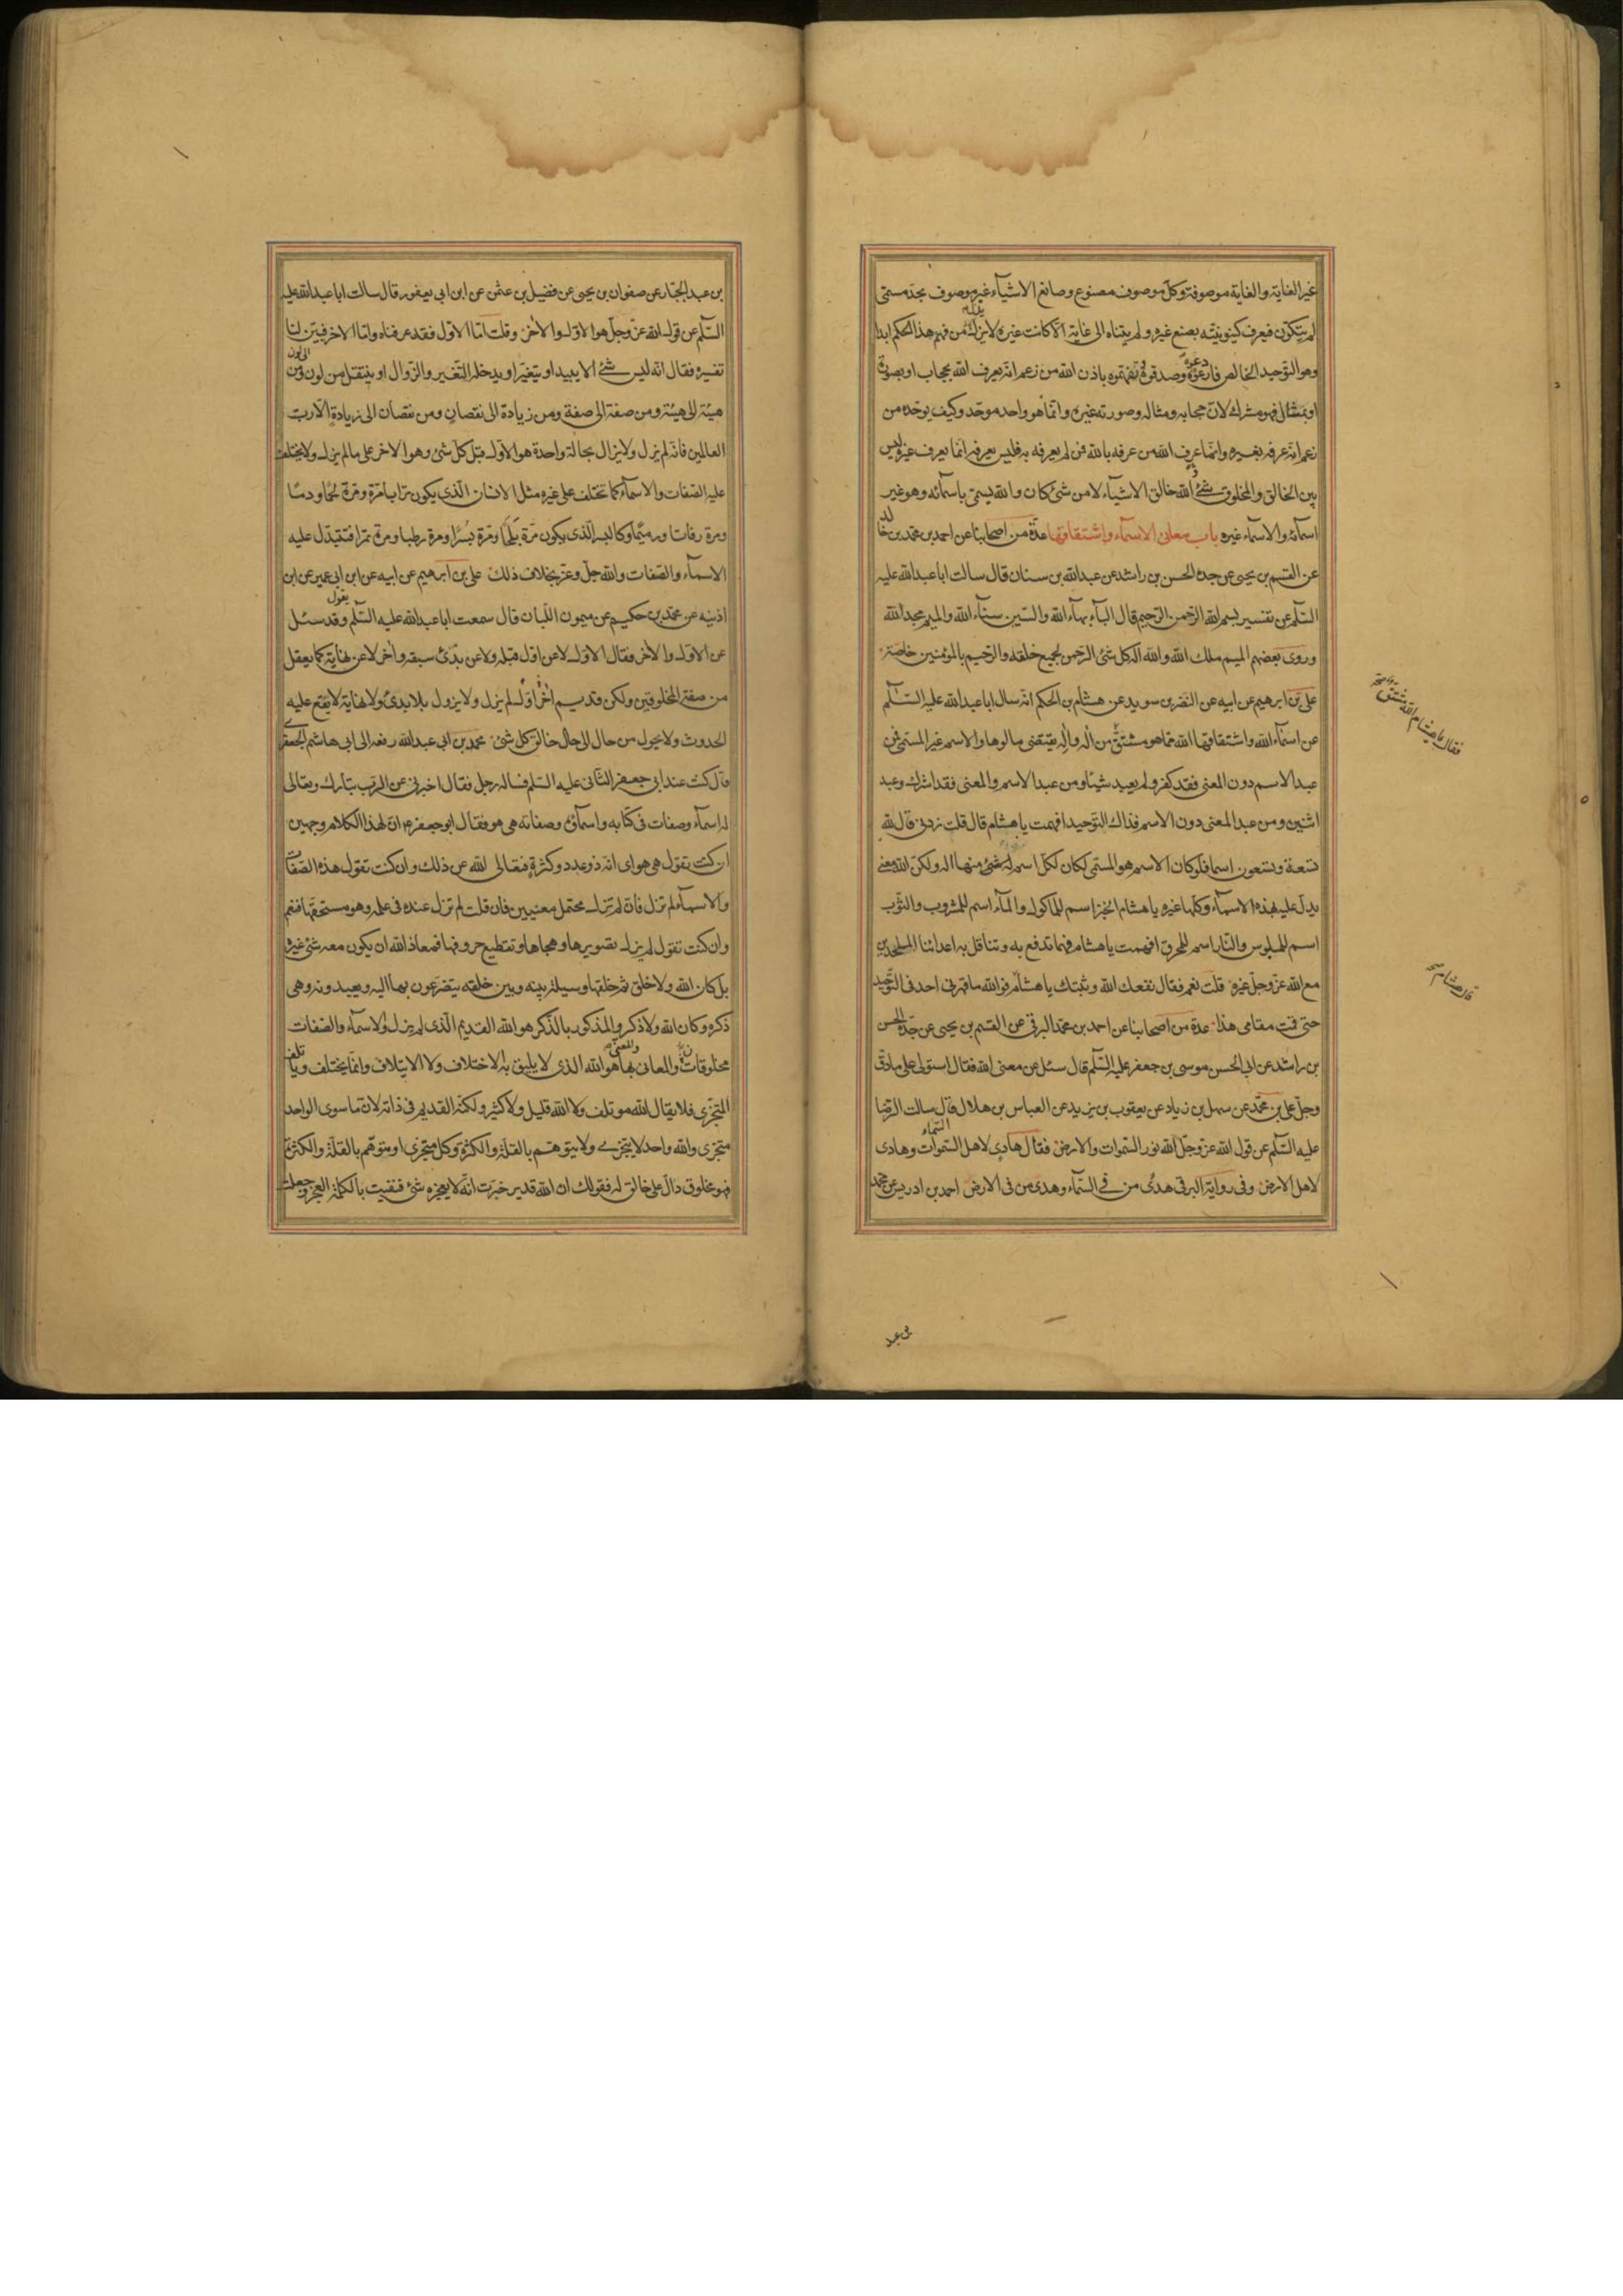 غير الغاية والغاية موصوفة وكل موصوف مصنوع وصانع الاشياء غير موصوف بحد مسمى
لم يتكون فيعرف كينونيته بصنع غيره ولم يتناه الى غاية الا كانت غيره لا يزل من فهم هذا الحكم ابدا
وهو التوحيد الخالص فارعوه وصدقوه وتفهموه باذن الله من زعم انه يعرف الله بحجاب او بصورة
او بمثال فهو مشرك لان حجابه ومثاله وصورته غيره وانما هو واحد موحد وكيف يوحده من
زعم انه عرفه بغيره وانما عرف الله من عرفه بالله فمن لم يعرفه به فليس يعرفه انما يعرف غيره ليس
بين الخالق والمخلوق شئ والله خالق الاشياء لا من شئ كان والله يسمى باسمائه وهو غير
اسمائه والاسماء غيره باب معاني الاسماء واشتقاقها عدة من اصحابنا عن احمد بن محمد بن خالد
عن القسم بن يحيى عن جده الحسن بن راشد عن عبد الله بن سنان قال سالت ابا عبد الله عليه
السلم عن تفسير بسم الله الرحمن الرحيم قال الباء بهاء الله والسين سناء الله والميم مجد الله
وروى بعضهم الميم ملك الله والله اله كل شئ الرحمن بجميع خلقه والرحيم بالمؤمنين خاصة
على بن ابرهيم عن ابيه عن النضر بن سويد عن هشام بن الحكم انه سال ابا عبد الله عليه السلم
عن اسماء الله واشتقاقها الله مما هو مشتق من اله واله يقتضي مالوها والاسم غير المسمى فمن
عبد الاسم دون المعنى فقد كفر ولم يعبد شيئا ومن عبد الاسم والمعنى فقد اشرك وعبد
اثنين ومن عبد المعنى دون الاسم فذاك التوحيد افهمت يا هشام قال قلت زدني قال لله
تسعة وتسعون اسما فلو كان الاسم هو المسمى لكان لكل اسم شئ منها اله ولكن الله معنى
يدل عليه بهذه الاسماء وكلها غيره يا هشام الخبز اسم للماكول والماء اسم للمشروب والثوب
اسم للملبوس والنار اسم للمحرق افهمت يا هشام فهما تدفع به وتناقل به اعدائنا الملحدين
مع الله عز وجل غيره قلت نعم فقال نفعك الله وثبتك يا هشام فوالله ما قهرني احد في التوحيد
حتى قمت مقامى هذا عدة من اصحابنا عن احمد بن محمد البرقي عن القسم بن يحيى عن جده الحسن
بن راشد عن ابي الحسن موسى بن جعفر عليه السلم قال سئل عن معنى الله فقال استولى على ما دق
وجل على بن محمد عن سهل بن زياد عن يعقوب بن يزيد عن العباس بن هلال قال سالت الرضا
عليه السلم عن قول الله عز وجل الله نور السموات والارض فقال هادى لاهل السموات وهادى
لاهل الارض وفي رواية البرقي هدى من في السماء وهدى من في الارض احمد بن ادريس عن محمد
فقال يا هشام الله مشتق
قال هشام
بن عبد
بن عبد الجبار عن صفوان بن يحيى عن فضيل بن عثمن عن ابن ابي يعفور قال سالت ابا عبد الله عليه
السلم عن قول الله عز وجل هو الاول والاخر وقلت اما الاول فقد عرفناه واما الاخر فبين لنا
تفسيره فقال انه ليس شئ الا يبيد او يتغير او يدخله التغير والزوال او ينتقل من لون الى لون ومن
هيئة الى هيئة ومن صفة الى صفة ومن زيادة الى نقصان ومن نقصان الى زيادة الا رب
العالمين فانه لم يزل ولا يزال بحالة واحدة هو الاول قبل كل شئ وهو الاخر على ما لم يزل ولا يختلف
عليه الصفات والاسماء كما تختلف على غيره مثل الانسان الذى يكون ترابا مرة ومرة لحما ودما
ومرة رفاتا ورميما وكالبسر الذى يكون مرة بلحا ومرة بسرا ومرة رطبا ومرة تمرا فتتبدل عليه
الاسماء والصفات والله جل وعز بخلاف ذلك على بن ابرهيم عن ابيه عن ابن ابي عمير عن ابن
اذينه عن محمد بن حكيم عن ميمون اللبان قال سمعت ابا عبد الله عليه السلم يقول وقد سئل
عن الاول والاخر فقال الاول لا عن اول قبله ولا عن بدئ سبقه واخر لا عن نهاية كما يعقل
من صفة المخلوقين ولكن قديم اخر اول لم يزل ولا يزول بلا بدئ ولا نهاية لا يقع عليه
الحدوث ولا يحول من حال الى حال خالق كل شئ محمد بن ابي عبد الله رفعه الى ابي هاشم الجعفري
قال كنت عند ابي جعفر الثاني عليه السلم فساله رجل فقال اخبرني عن الرب تبارك وتعالى
له اسماء وصفات في كتابه واسماؤه وصفاته هي هو فقال ابو جعفر ان لهذا الكلام وجهين
ان كنت تقول هي هو اى انه ذو عدد وكثرة فتعالى الله عن ذلك وان كنت تقول هذه الصفات
والاسماء لم تزل فان لم تزل محتمل معنيين فان قلت لم تزل عنده في علمه وهو مستحقها فنعم
وان كنت تقول لم يزل تصويرها وهجاها وتقطيع حروفها فمعاذ الله ان يكون معه شئ غيره
بل كان الله ولا خلق ثم خلقها وسيلة بينه وبين خلقه يتضرعون بها اليه ويعبدونه وهي
ذكره وكان الله ولا ذكر والمذكور بالذكر هو الله القديم الذى لم يزل والاسماء والصفات
مخلوقات والمعاني والمعنى بها هو الله الذى لا يليق به الاختلاف ولا الايتلاف وانما يختلف وياتلف
المتجزى فلا يقال الله موتلف ولا الله قليل ولا كثير ولكنه القديم في ذاته لان ما سوى الواحد
متجزى والله واحد لا يتجزى ولا يتوهم بالقلة والكثرة وكل متجزى او متوهم بالقلة والكثرة
فهو مخلوق دال على خالق له فقولك ان الله قدير خبرت انه لا يعجزه شئ فنفيت بالكلمة العجز وجعلت